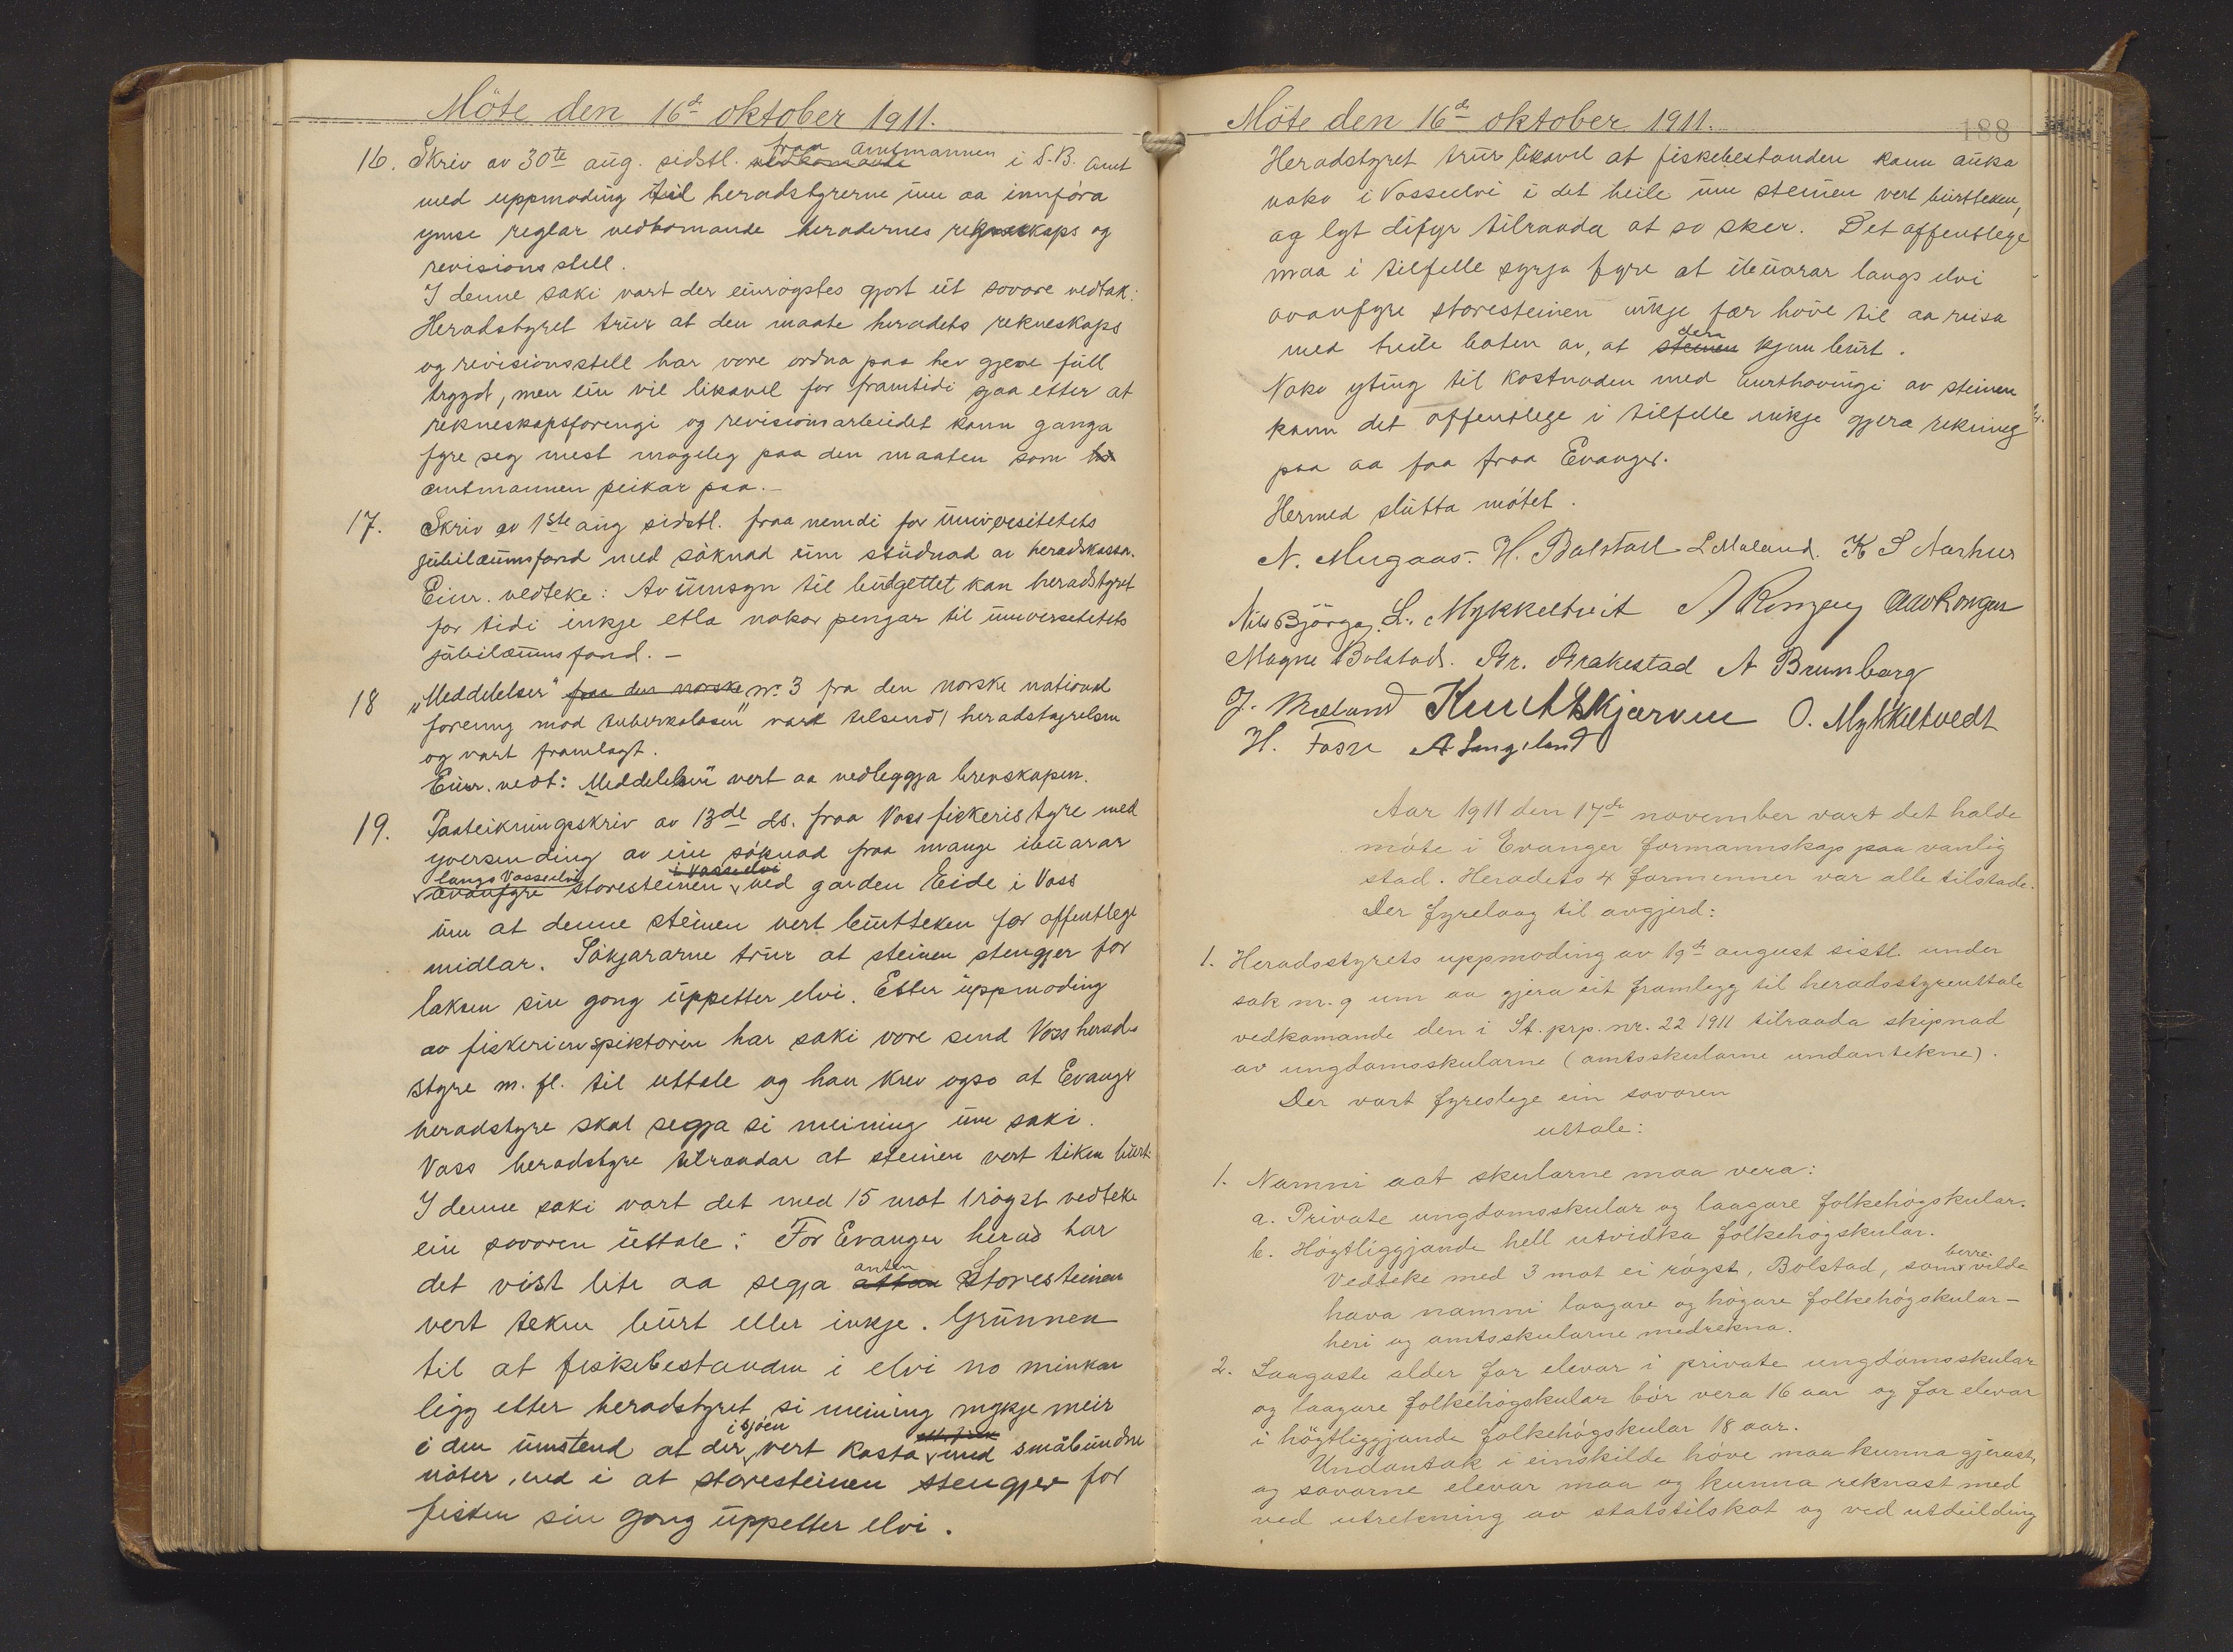 Möte den 16de oktober 1911.
16. Skriv av 30te aug. sidstl. vedkomande fraa amtmannen i S.B. amt
med uppmoding til heradstyrerne um aa innføra
ymse reglar vedkomande heradernes rekneskaps og
revisionsstell.
I denne saki vart der einrøystes gjort ut sovore vedtak:
Heradstyret trur at den maate heradets rekneskaps
og revisionsstell har vore ordna paa hev gjeve full
trygd, men ein vil likavel for framtidi gaa etter at
rekneskapsførengi og revisionsarbeidet kann ganga
fyre seg mest mogeleg paa den maaten som
amtmannen peikar paa.—
17. Skriv av 1ste aug sidstl. fraa nemdi for universitetets
jubilæumsfond med søknad um studnad av heradskassa.
Einr. vedteke: Av umsyn til budgettet kan heradstyret
for tidi inkje etla nokor pengar til universetetets
jubilæumsfond.—
18 „Meddelelser" fraa den norske nr. 3 fra den norske national
forening mod tuberkulosen" vart tilsend heradstyrelsen
og vart framlagt.
Einr. vedt: Meddelelsen vert aa vedleggja brevskapen.
19. Paateikningsskriv av 13de ds. fraa Voss fiskeristyre med
yversending av ein søknad fraa mange ibuarar
langs Vosseelvi ovanfyre storesteinen i Vosseelvi ved garden Eide i Voss
um at denne steinen vert burtteken for offentlege
midlar. Søkjararne trur at steinen stengjer for
laksen sin gong uppetter elvi. Etter uppmoding
av fiskeriinspiktøren har saki vore send Voss herads
styre m. fl. til uttale og han krev ogso at Evanger
heradstyre skal segja si meining um saki.
Voss heradstyre tilraadar at steinen vert teken burt.
I denne saki vart det med 15 mot 1 røyst vedteke
ein sovoren uttale: For Evanger herad har
det vist lite aa segja attan anten Storesteinen
vert teken burt eller inkje. Grunnen
til at fiskebestanden i elvi no minkar
ligg etter heradstyret si meining mykje meir
i den umstend at der i sjøen vert kasta med småbundne
nøter, end i at storesteinen stengjer for
fisken sin gong uppetter elvi.
Möte den 16de oktober 1911.
188
Heradstyret trur likavel at fiskebestanden kann auka
noko i Vosseelvi i det heile um steinen vert burtteken,
og lyt difyr tilraada at so sker. Det offentlege
maa i tilfelle syrja fyre at ibuarar langs elvi
ovanfyre storesteinen inkje fær høve til aa reisa
med tvile boten av, at steinen den kjem burt.
Noko yting til kostnaden med burthovingi av steinen
kann det offentlege i tilfelle inkje gjera rekning
paa aa faa fraa Evanger.
Hermed slutta møtet.
N. Mugaas. H. Bolstad L Mæland. K S Aarhus
Nils Bjørgo. L. Mykkeltveit A Rongen
Magne Bolstad. Br. Brakestad A Brunborg
J. Mæland Knut Skjerven O. Mykkeltvedt
H. Fosse A Langeland
Aar 1911 den 17de november vart det halde
møte i Evanger formannskap paa vanlig
stad. Heradets 4 formenner var alle tilstade.
Der fyrelaag til avgjerd:
1. Heradsstyrets uppmoding av 19de august sistl. under
sak nr. 9 um aa gjera eit framlegg til heradsstyreuttale
vedkomande den i St. prp. nr. 22 1911 tilraada skipnad
av ungdomsskularne (amtsskularne undantekne).
Der vart fyreslege ein sovoren
uttale:
1. Namni aat skularne maa vera:
a. Private ungdomsskular og laagare folkehøgskular.
b. Høgtliggjande hell utvidka folkehøgskular.
Vedteke med 3 mot ei røyst, Bolstad, som berre vilde
hava namni laagare og høgare folkehøgskular —
heri og amtsskularne medrekna.
2. Laagaste alder for elevar i private ungdomsskular
og laagare folkehøgskular bør vera 16 aar og for elevar
i høgtliggjande folkehøgskular 18 aar.
Undantak i einskilde høve maa kunna gjerast,
og sovorne elevar maa og kunna reknast med
ved utrekning av statstilskot og ved utdeilding